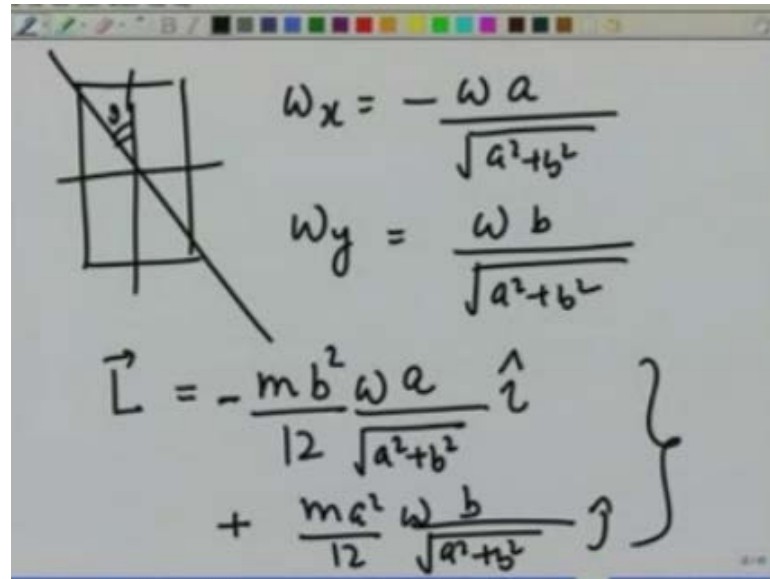 θ
ωx = - ω a / √(a²+b²)
ωy = ω b / √(a²+b²)
L⃗ = - mb²/12 ω a / √(a²+b²) î
+ ma²/12 ω b / √(a²+b²) ĵ }